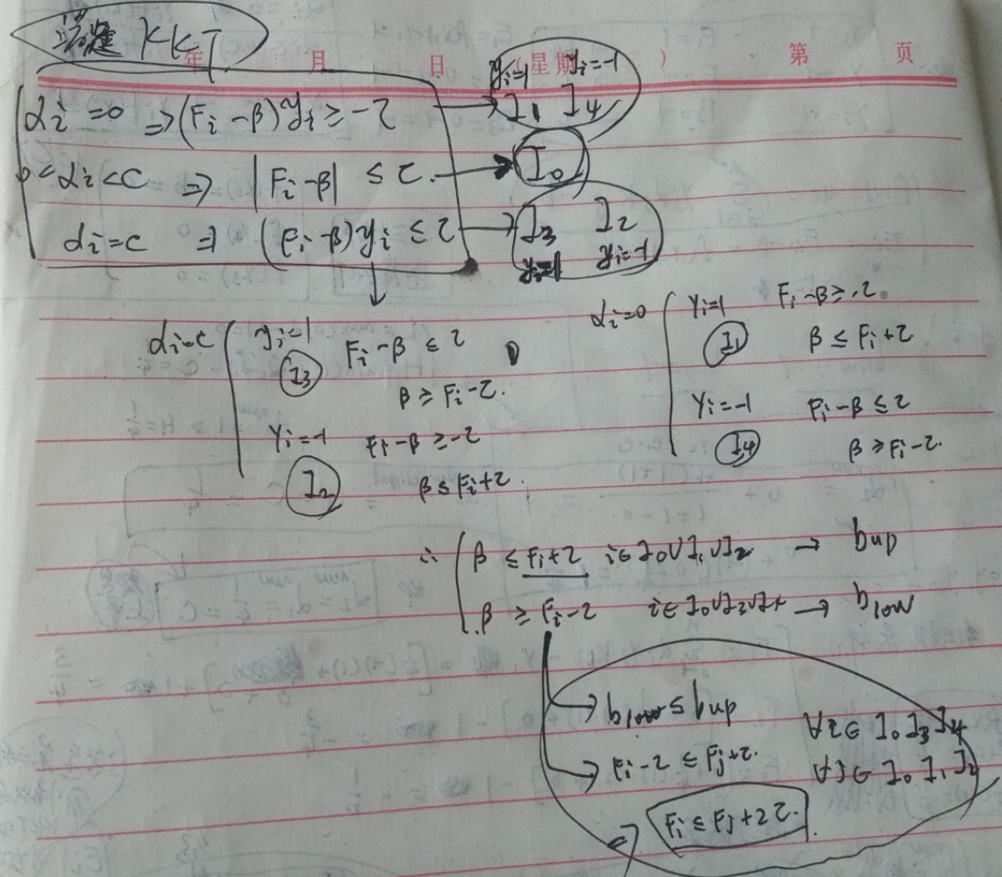 KKT
年 月 日 (星期 ) 第 页
αi=0 ⇒(Fi-β)yi≥-τ
yi=1 yi=-1
I1 I4
0<αi<C ⇒ |Fi-β| ≤τ. I0
αi=C ⇒ (Fi-β)yi ≤τ
I3 I2
yi=1 yi=-1
αi=C yi=1 Fi-β≤τ
I3 β≥Fi-τ.
yi=-1 Fi-β≥-τ
I2 β≤Fi+τ.
αi=0 yi=1 Fi-β≥-τ
I1 β≤Fi+τ
yi=-1 Fi-β≤τ
I4 β≥Fi-τ.
∴ β≤Fi+τ i∈I0∪I1∪I2 → bup
β≥Fi-τ i∈I0∪I3∪I4 → blow
→ blow≤bup ∀i∈I0I3I4
→ Fi-τ≤Fj+τ. ∀j∈I0I1I2
⇒ Fi≤Fj+2τ.